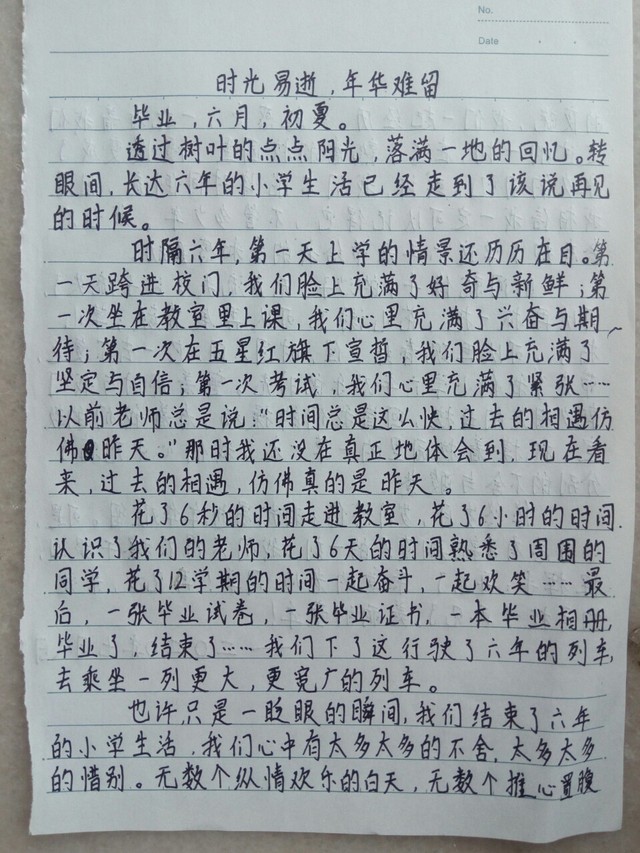 No.
Date
时光易逝,年华难留
毕业,六月,初夏。
透过树叶的点点阳光,落满一地的回忆。转
眼间,长达六年的小学生活已经走到了该说再见
的时候。
时隔六年,第一天上学的情景还历历在目。第
一天跨进校门,我们脸上充满了好奇与新鲜;第
一次坐在教室里上课,我们心里充满了兴奋与期
待;第一次在五星红旗下宣哲,我们脸上充满了
坚定与自信;第一次考试,我们心里充满了紧张……
以前老师总是说:“时间总是这么快,过去的相遇仿
佛昨天。”那时我还没在真正地体会到,现在看
来,过去的相遇,仿佛真的是昨天。
花了6秒的时间走进教室,花了6小时的时间
认识了我们的老师,花了6天的时间熟悉了周围的
同学,花了12学期的时间一起奋斗,一起欢笑……最
后,一张毕业试卷,一张毕业证书,一本毕业相册,
毕业了,结束了……我们下了这行驶了六年的列车,
去乘坐一列更大,更宽广的列车。
也许只是一眨眼的瞬间,我们结束了六年
的小学生活,我们心中有太多太多的不舍,太多太多
的惜别。无数个纵情欢乐的白天,无数个推心置腹